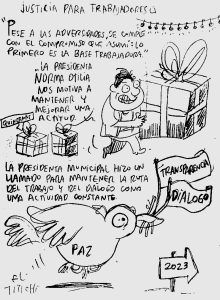 JUSTICIA PARA TRABAJADORES
"PESE A LAS ADVERSIDADES, SE CUMPLE
CON EL COMPROMISO QUE ASUMÍ: LO
PRIMERO ES LA BASE TRABAJADORA"
LA PRESIDENTA
NORMA OTILIA
NOS MOTIVA A
MANTENER Y
MEJORAR UNA
ACTITUD
LA PRESIDENTA MUNICIPAL HIZO UN
LLAMADO PARA MANTENER LA RUTA
DEL TRABAJO Y DEL DIÁLOGO COMO
UNA ACTIVIDAD CONSTANTE
TRANSPARENCIA
DIÁLOGO
PAZ
2023
EL